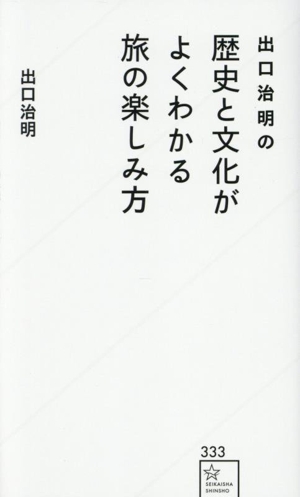 出口治明の
歴史と文化が
よくわかる
旅の楽しみ方
出口治明
333
SEIKAISHA
SHINSHO